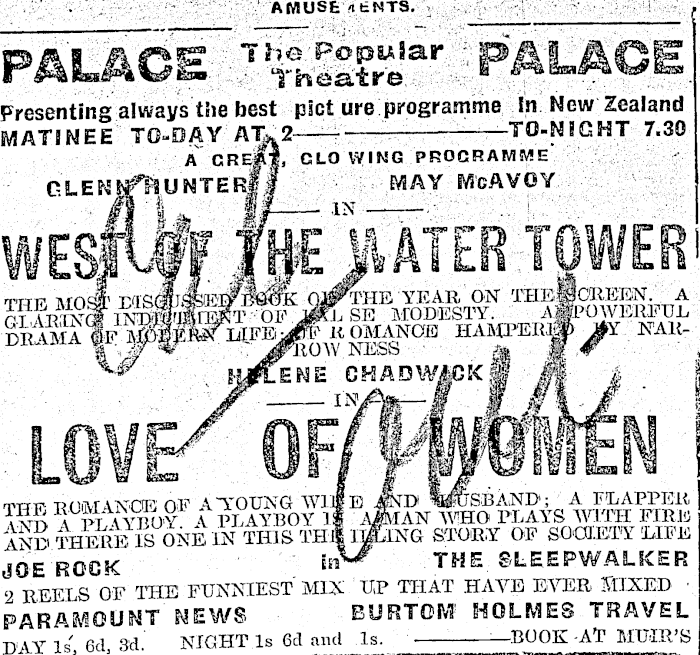 AMUSEMENTS.
PALACE The Popular Theatre PALACE
Presenting always the best pict ure programme In New Zealand
MATINEE TO-DAY AT 2— —TO-NIGHT 7.30
A GREAT, GLO WING PROGRAMME
GLENN HUNTER MAY McAVOY
IN
WEST OF THE WATER TOWER
THE MOST DISCUSSED BOOK OF THE YEAR ON THE SCREEN. A
GLARING INDICTMENT OF FALSE MODESTY. A POWERFUL
DRAMA OF MODERN LIFE; OF ROMANCE HAMPERED BY NAR-
ROW NESS
HELENE CHADWICK
IN
LOVE OF WOMEN
THE ROMANCE OF A YOUNG WIFE AND HUSBAND; A FLAPPER
AND A PLAYBOY. A PLAYBOY IS A MAN WHO PLAYS WITH FIRE
AND THERE IS ONE IN THIS THRILLING STORY OF SOCIETY LIFE
JOE ROCK in THE SLEEPWALKER
2 REELS OF THE FUNNIEST MIX UP THAT HAVE EVER MIXED
PARAMOUNT NEWS BURTOM HOLMES TRAVEL
DAY 1s, 6d, 3d. NIGHT 1s 6d and 1s. —BOOK AT MUIR'S
out